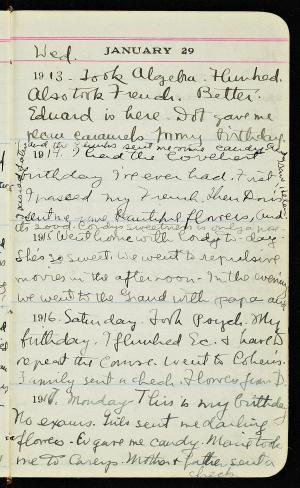 JANUARY 29
Wed.
1913. Took Algebra. Flunked.
Also took French. Better.
Eduard is here. Dot gave me
pecan caramels for my birthday.
and the sent me some candy.
1914. I had the loveliest
birthday I've ever had. First
I passed my French. Then Doris
sent me some beautiful flowers, and
is good. Cordy's sweetness is only a
1915 Went home with Cordy to-day.
She's so sweet. We went to repulsive
movies in the afternoon. In the evening
we went to the Grand with papa and
1916. Saturday. Took Psych. My
birthday. I flunked Ec. & have to
repeat the Course. Went to Cohens.
Family sent a check. Flowers from D.
191 . Monday. This is my birthday
No exams. sent me darling
flowers. Ev gave me candy. Marie took
me to Careys. Mother & Father sent a
check